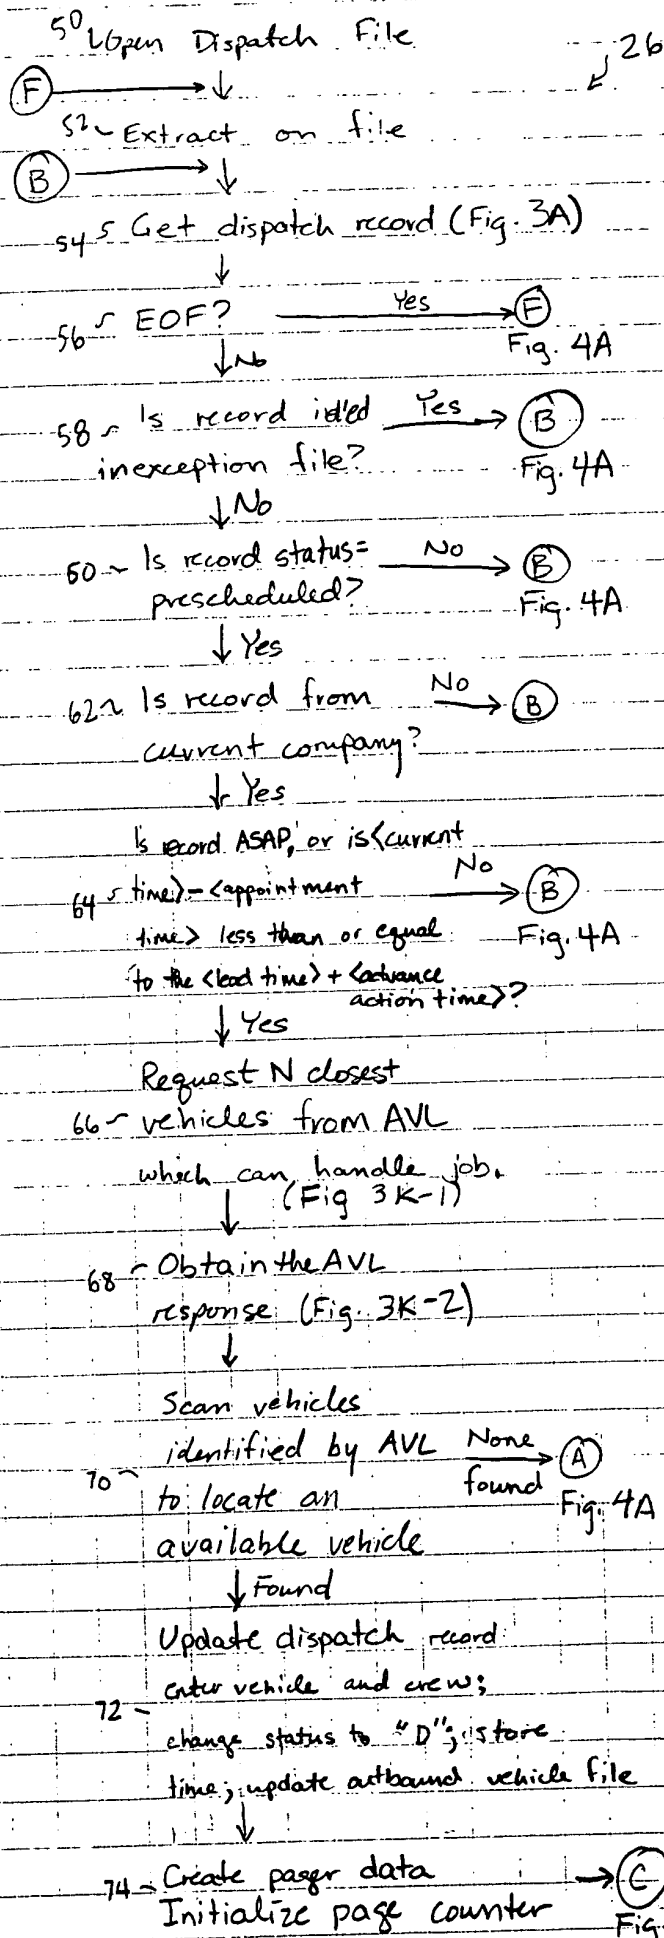 50 Open Dispatch File
26
F
52 Extract on file
B
54 Get dispatch record (Fig. 3A)
56 EOF? Yes F
Fig. 4A
No
58 Is record id'ed Yes B
in exception file? Fig. 4A
No
60 Is record status= No B
prescheduled? Fig. 4A
Yes
62 Is record from No B
current company?
Yes
Is record ASAP, or is <current
64 time> - <appointment No B
time> less than or equal Fig. 4A
to the <lead time> + <advance
action time>?
Yes
Request N closest
66 vehicles from AVL
which can handle job.
(Fig 3K-1)
68 Obtain the AVL
response (Fig. 3K-2)
Scan vehicles
identified by AVL None A
70 to locate an found Fig. 4A
available vehicle
Found
Update dispatch record
enter vehicle and crew;
72 change status to "D"; store
time; update outbound vehicle file
74 Create pager data C
Initialize page counter Fig.